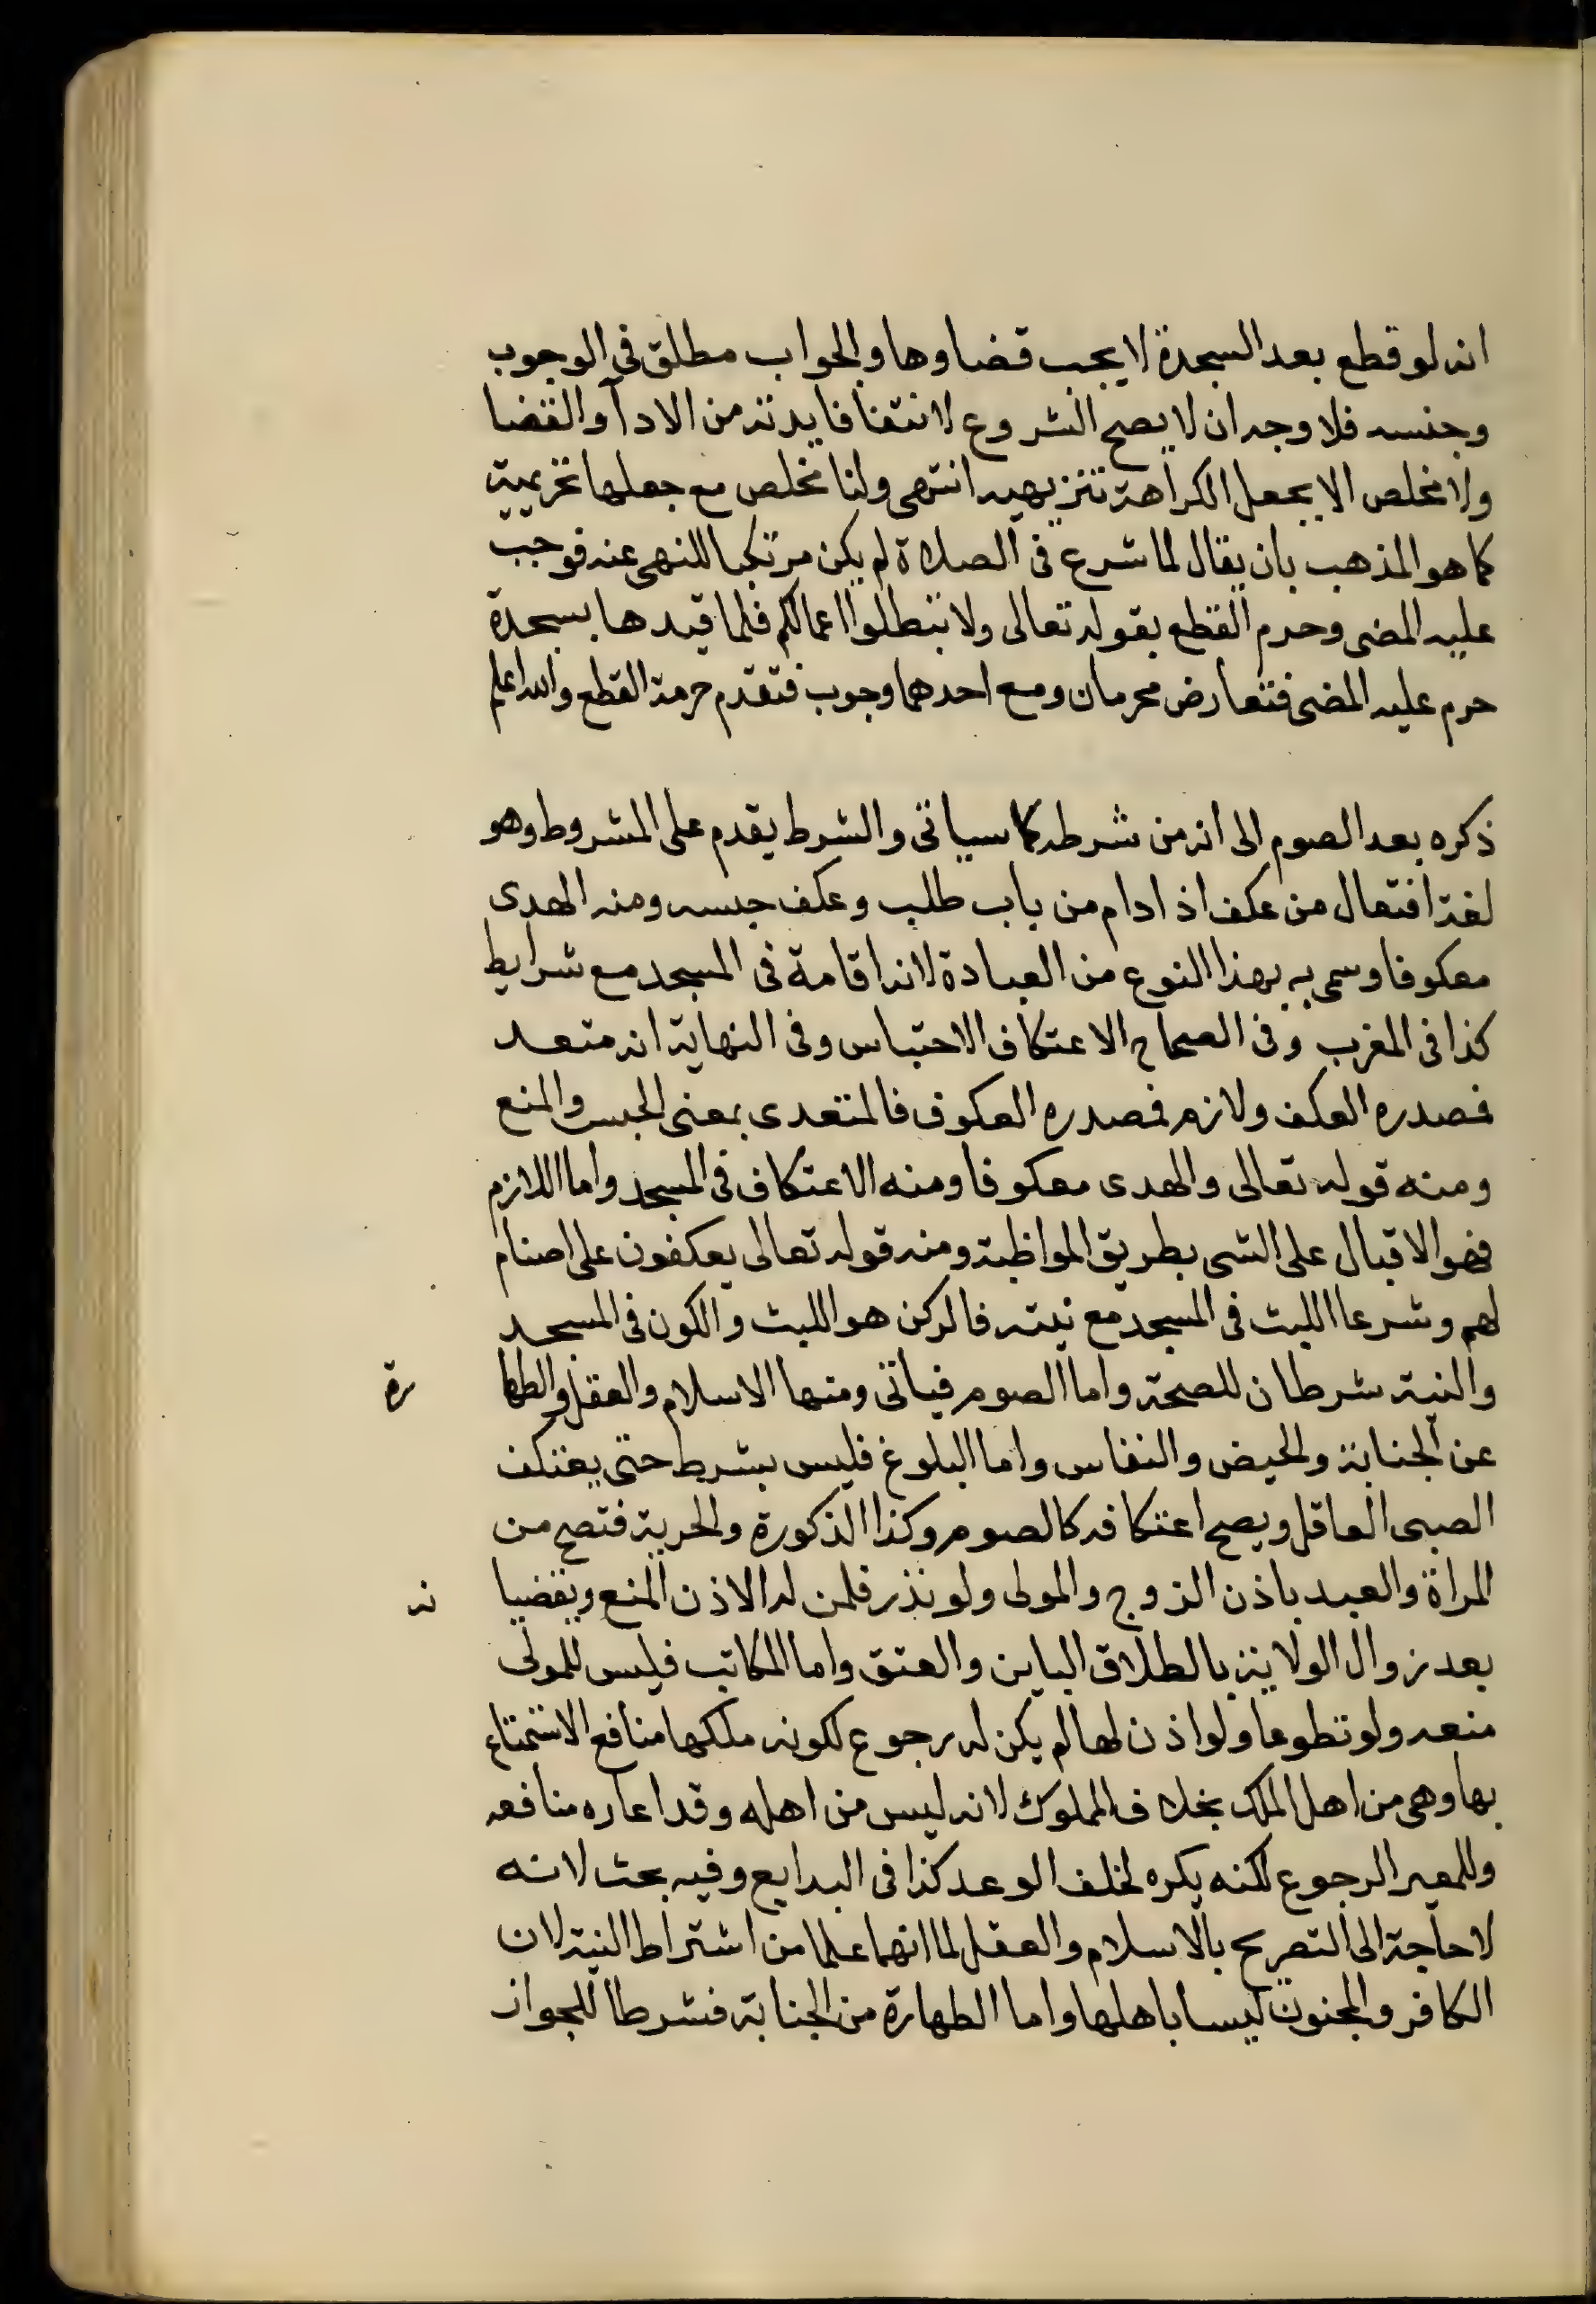 انه لو قطع بعد السجدة لا يجب قضاوها والجواب مطلق في الوجوب
وجنسه فلا وجه ان لا يصح الشروع لانتفا فايدته من الادآ والقضا
ولا مخلص الا بجعل الكراهة تنزيهيه انتهى ولنا مخلص مع جعلها تحريمية
كما هو المذهب بان يقال لما شرع في الصلاة لم يكن مرتكبا للنهى عنه فوجب
عليه المضى وحرم القطع بقوله تعالى ولا تبطلوا اعمالكم فلما قيدها بسجدة
حرم عليه المضى فتعارض محرمان ومع احدهما وجوب فتقدم حرمة القطع والله اعلم
ذكره بعد الصوم الى انه من شرطه كما سياتى والشرط يقدم على المشروط وهو
لغة افتعال من عكف اذا دام من باب طلب وعكف حبسه ومنه الهدى
معكوفا وسمى به بهذا النوع من العبادة لانه اقامة في المسجد مع شرايط
كذا في المغرب وفى الصحاح الاعتكاف الاحتباس وفى النهاية انه متعد
فمصدره العكف ولازم فمصدره العكوف فالمتعدى بمعنى الحبس والمنع
ومنه قوله تعالى والهدى معكوفا ومنه الاعتكاف في المسجد واما اللازم
فهو الاقبال على الشى بطريق المواظبة ومنه قوله تعالى يعكفون على اصنام
لهم وشرعا اللبث في المسجد مع نيته فالركن هو اللبث والكون في المسجد
والنية شرطان للصحة واما الصوم فياتى ومنها الاسلام والعقل والطها رة
عن الجنابة والحيض والنفاس واما البلوغ فليس بشرط حتى يعتكف
الصبى العاقل ويصح اعتكافه كالصوم وكذا الذكورة والحرية فتصح من
المراة والعبد باذن الزوج والمولى ولو نذر فلمن له الاذن المنع ويقضيا نه
بعد زوال الولاية بالطلاق الباين والعتق واما المكاتب فليس للمولى
منعه ولو تطوعا ولو اذن لها لم يكن له رجوع لكونه ملكها منافع الاستمتاع
بها وهى من اهل الملك بخلاف المملوك لانه ليس من اهله وقد اعاره منافعه
وللمعير الرجوع لكنه يكره لخلف الوعد كذا في البدايع وفيه بحث لانه
لا حاجة الى التصريح بالاسلام والعقل لما انهما علما من اشتراط النية لان
الكافر والمجنون ليسا باهلها واما الطهارة من الجنابة فشرطا للجواز